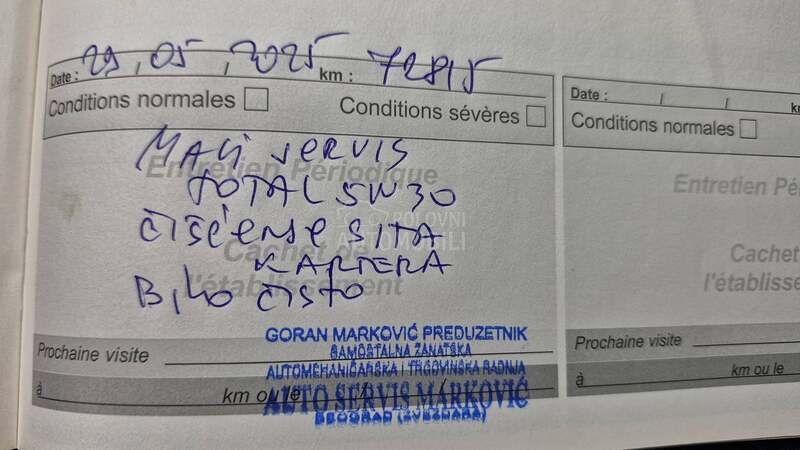 Date : 29, 05, 2025 km : 72815
Conditions normales
Conditions sévères
Entretien Périodique
MALI SERVIS
TOTAL 5W30
ČIŠĆENJE SITA
KARTERA
BILO ČISTO
Cachet de
l'établissement
POLOVNI
AUTOMOBILI
Prochaine visite
à km ou le / /
GORAN MARKOVIĆ PREDUZETNIK
SAMOSTALNA ZANATSKA
AUTOMEHANIČARSKA I TRGOVINSKA RADNJA
AUTO SERVIS MARKOVIĆ
BEOGRAD (ZVEZDARA)
Date : / /
Conditions normales
Entretien Pé
Cachet
l'établisse
Prochaine visite
à km ou le